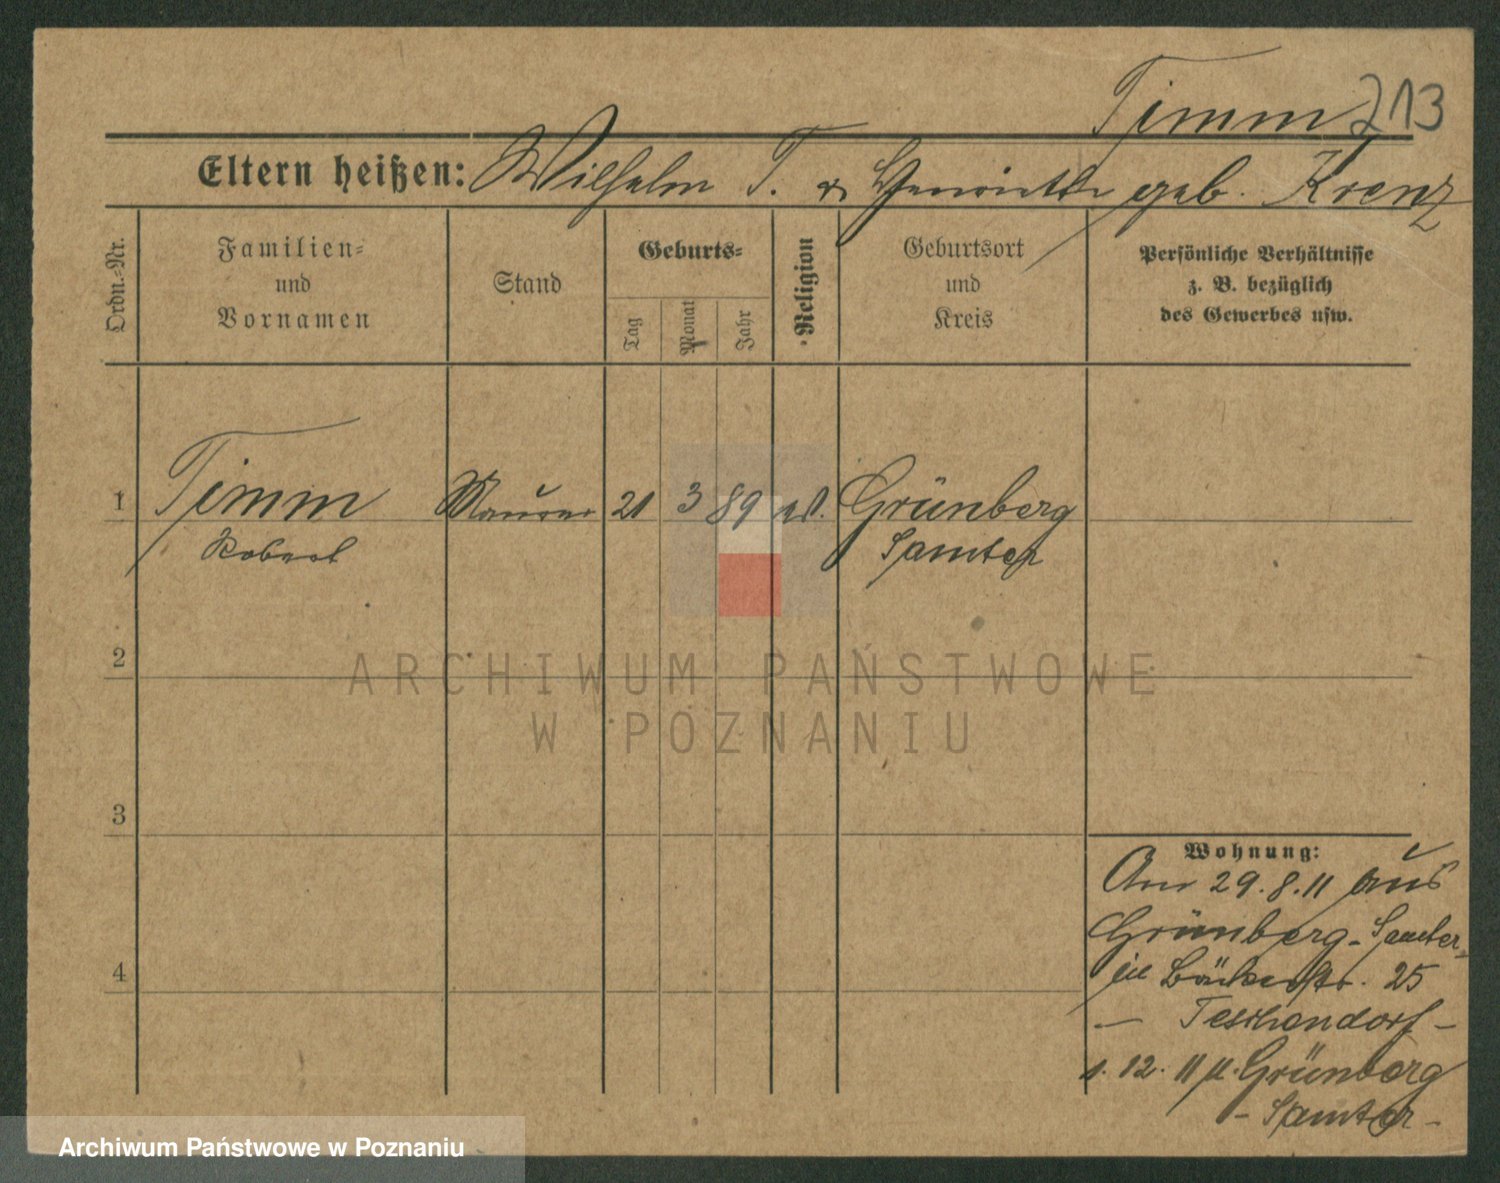 Timm 713
Eltern heißen: Wilhelm T. u. Henriette geb. Krenz
Ordn.-Nr.
Familien-
und
Vornamen
Stand
Geburts-
Tag
Monat
Jahr
Religion
Geburtsort
und
Kreis
Persönliche Verhältnisse
z. B. bezüglich
des Gewerbes usw.
1 Timm Maurer 21 3 89 Grünberg
Robert Samter
2
ARCHIWUM PAŃSTWOWE
W POZNANIU
3
Wohnung:
Am 29.8.11 aus
Grünberg - Samter
in Bäckerstr. 25
— Teschendorf —
4
1. 12. 11 n. Grünberg
- Samter -
Archiwum Państwowe w Poznaniu